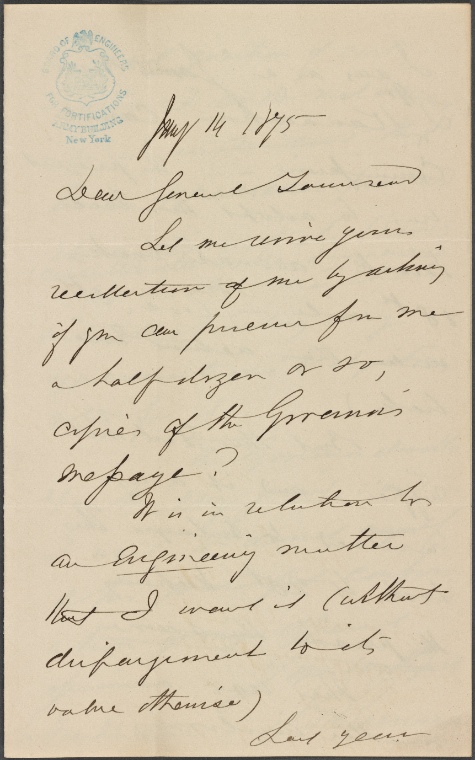 BOARD OF ENGINEERS
FOR FORTIFICATIONS
ARMY BUILDING
New York
Jany 14 1875
Dear General Townsend
Let me revive your
recollection of me by asking
if you can procure for me
a half dozen or so,
copies of the Governor's
message?
It is in relation to
an Engineering matter
that I want it (without
disparagement to its
value otherwise)
Last year